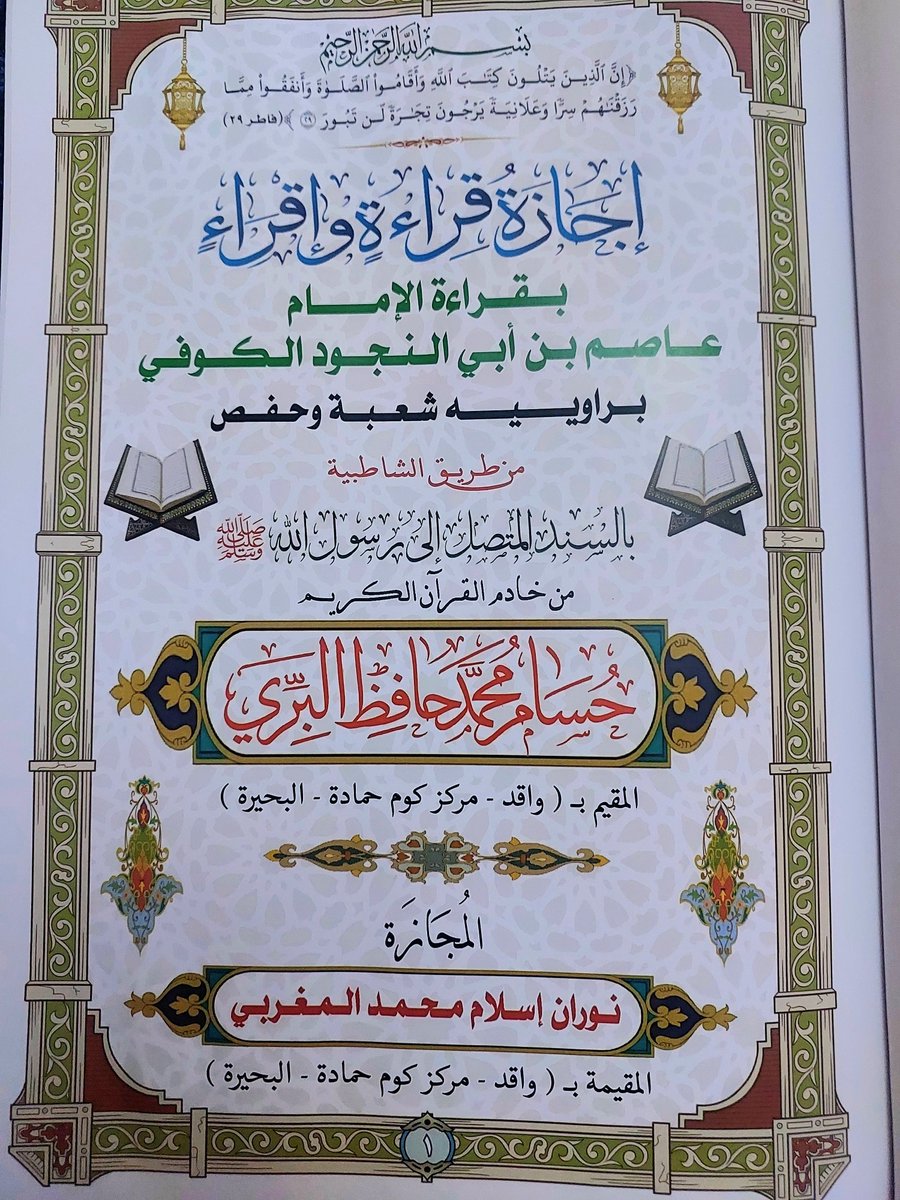 بِسْمِ اللَّهِ الرَّحْمَنِ الرَّحِيمِ
﴿إِنَّ ٱلَّذِينَ يَتْلُونَ كِتَٰبَ ٱللَّهِ وَأَقَامُوا۟ ٱلصَّلَوٰةَ وَأَنفَقُوا۟ مِمَّا
رَزَقْنَٰهُمْ سِرًّا وَعَلَانِيَةً يَرْجُونَ تِجَٰرَةً لَّن تَبُورَ ٢٩﴾ (فاطر ٢٩)
إِجَازَةُ قِرَاءَةٍ وَإِقْرَاءٍ
بقراءة الإمام
عاصم بن أبي النجود الكوفي
براوييه شعبة وحفص
من طريق الشاطبية
بالسند المتصل إلى رسول الله ﷺ
من خادم القرآن الكريم
حُسَام مُحَمَّد حَافِظ البِرِّي
المقيم بـ ( واقد - مركز كوم حمادة - البحيرة )
المُجَازَة
نوران إسلام محمد المغربي
المقيمة بـ ( واقد - مركز كوم حمادة - البحيرة )
١